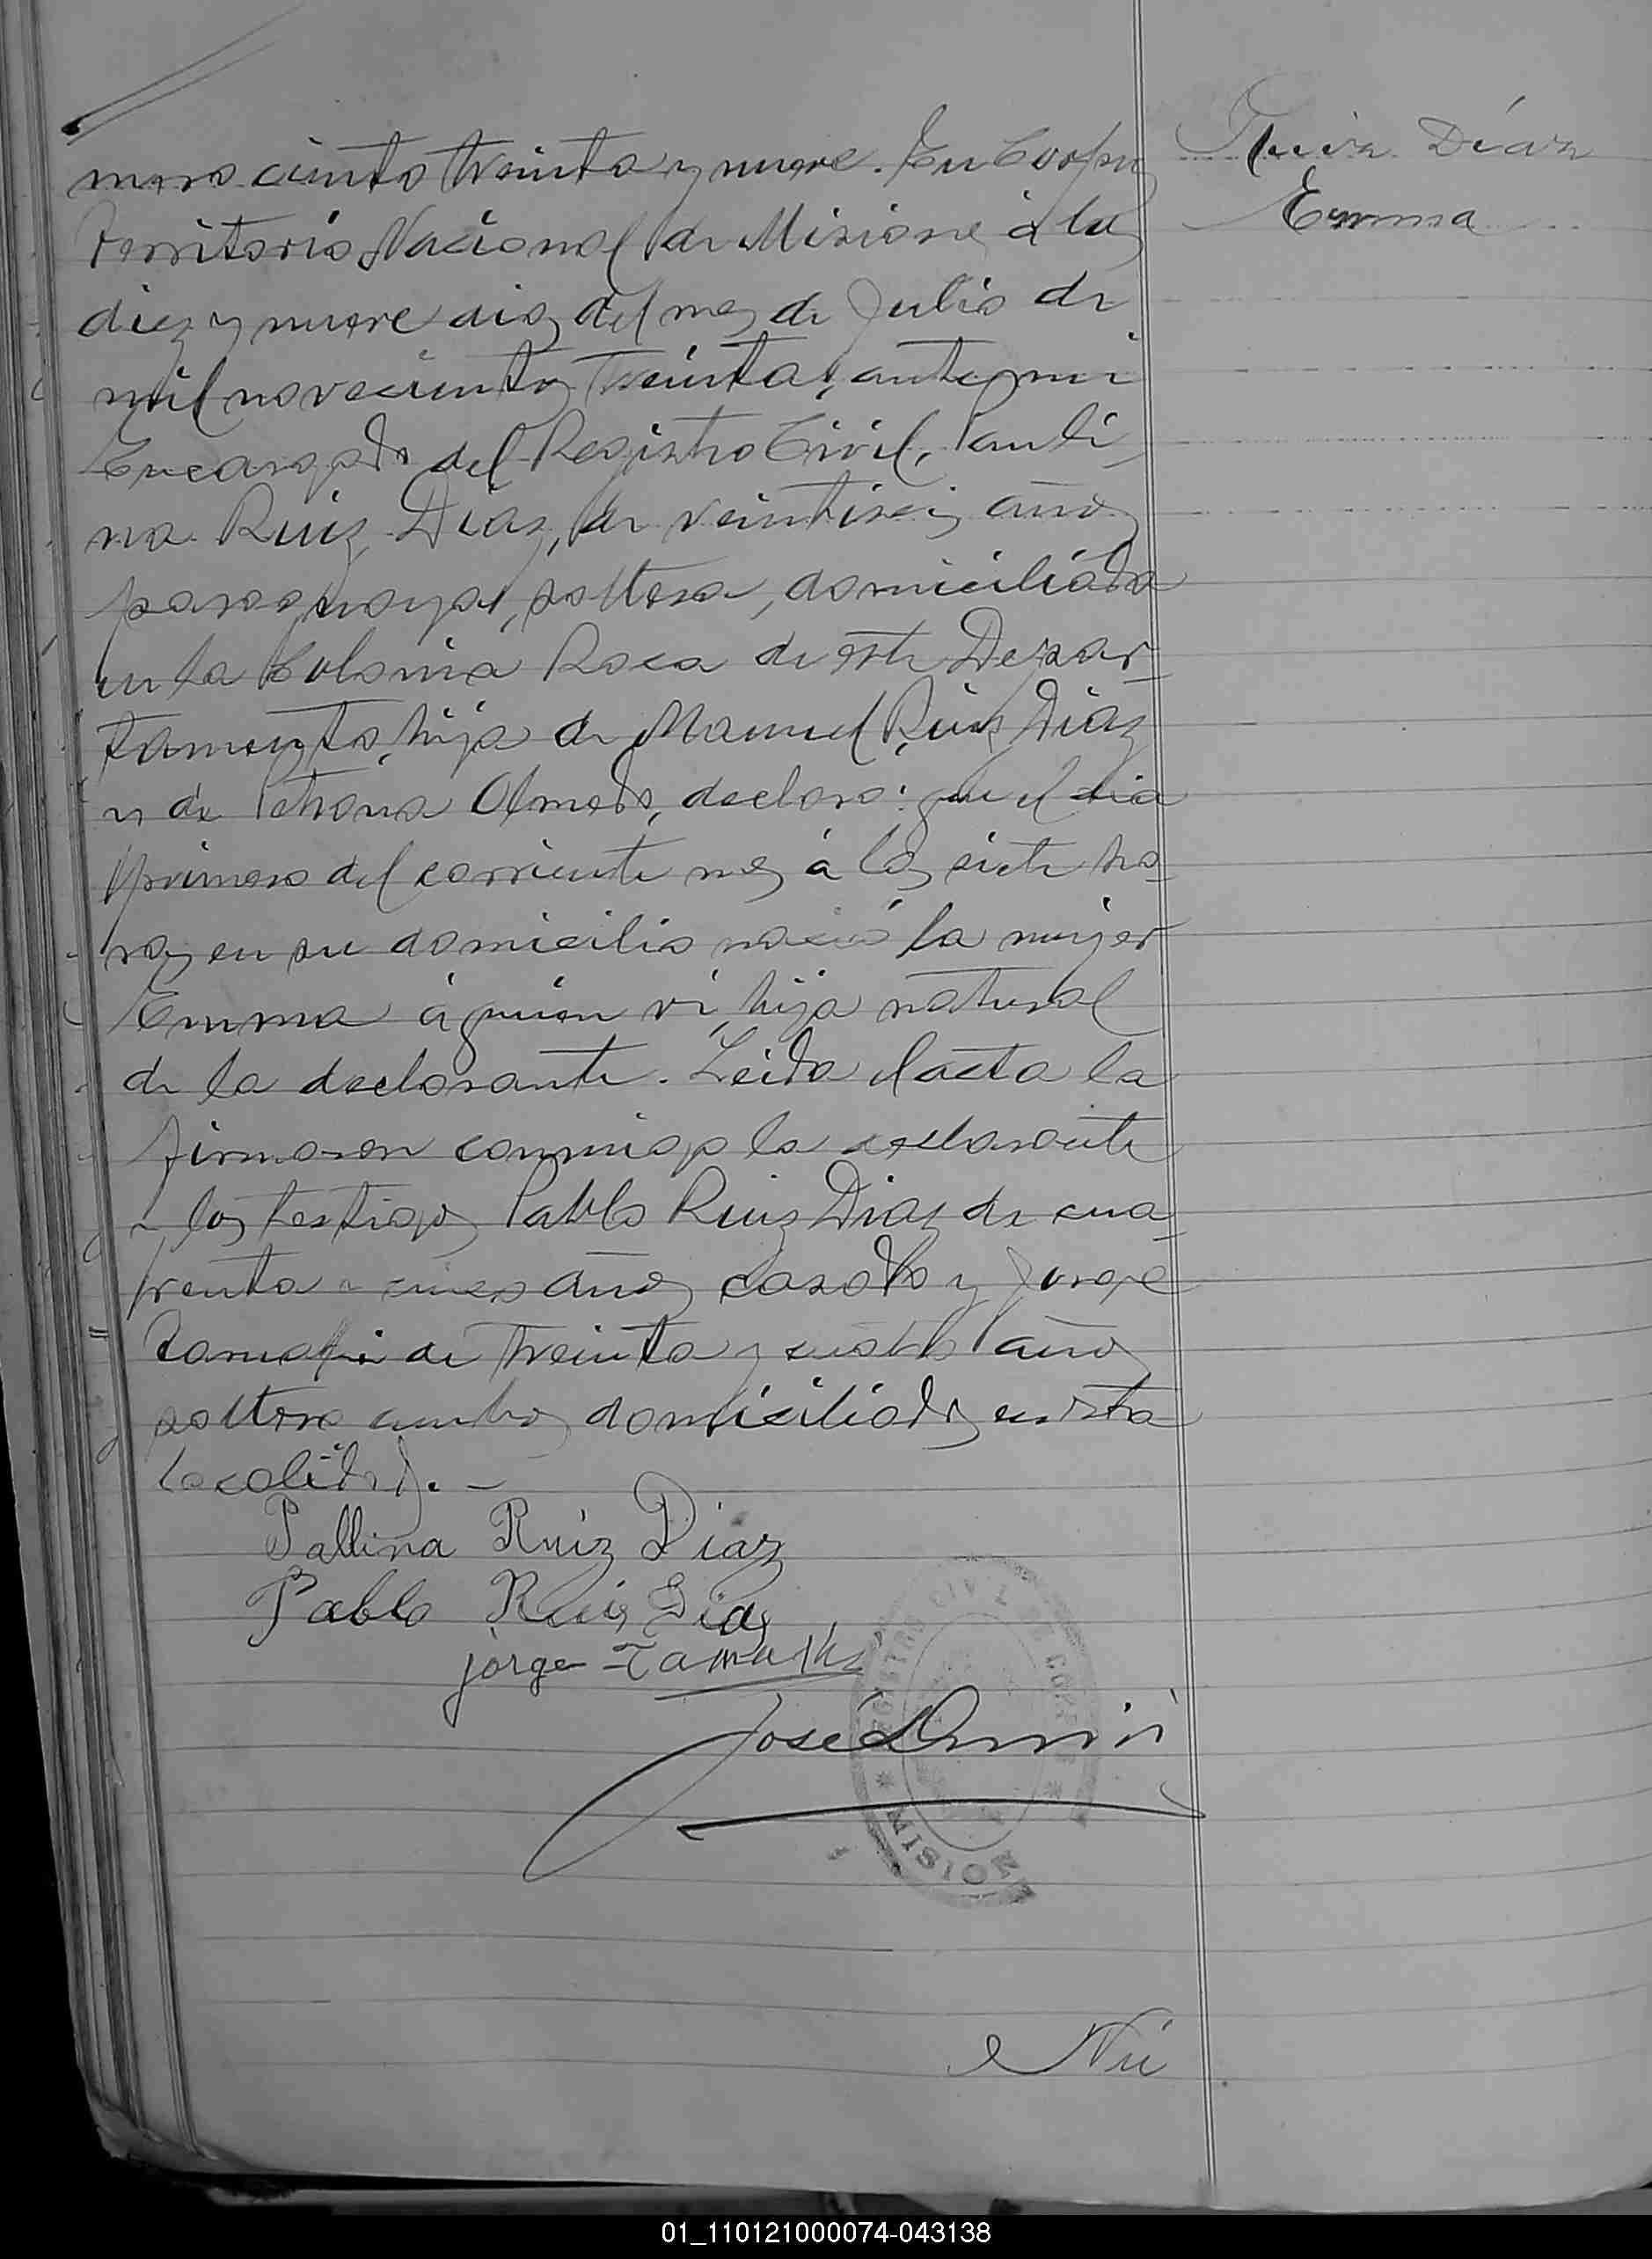 mero ciento treinta y nueve. En Corpus
Territorio Nacional de Misiones á los
diez y nueve dias del mes de Julio de
mil novecientos treinta, ante mi
Encargado del Registro Civil, Pauli-
na Ruiz Diaz, de veintiseis años
paraguaya, soltera, domiciliada
en la Colonia Roca de este Depar-
tamento, hija de Manuel Ruiz Diaz
y de Petrona Olmedo, declaró: que el dia
primero del corriente mes á las siete ho-
ras en su domicilio nació la mujer
Emma á quien vi, hija natural
de la declarante. Leida el acta la
firmaron conmigo la declarante
y los testigos Pablo Ruiz Diaz de cua-
renta y cinco años casado y Jorge
de treinta y cuatro años
soltero ambos domiciliados en esta
localidad. -
Pallina Ruiz Diaz
Pablo Ruis Dias
jorge
José
Nú
Ruiz Díaz
Emma
REGISTRO CIVIL
MISIONES
01_110121000074-043138